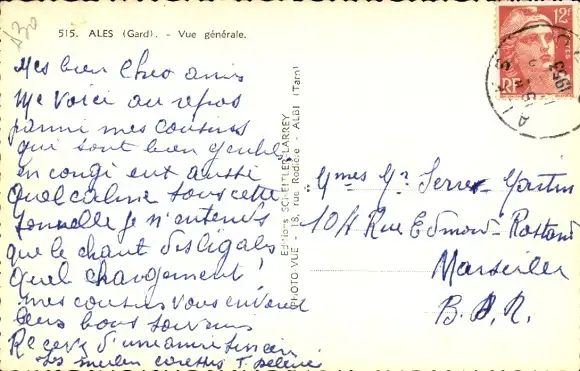 130
515. ALES (Gard). - Vue générale.
12F
RF
ALES
1953
Mes bien Chers amis
Me voici au repos
parmi mes cousins
qui sont bien gentils,
en congé eux aussi
Quel calme sous cette
tonnelle je n'entends
que le chant des cigales
Quel changement !
mes cousins vous envoient
leurs bons souvenirs
Recevez d'une amie sincère
les meilleures caresses
Editions SCHEITLER-LARREY
PHOTO-VUE - 18, rue Rodière - ALBI (Tarn)
Mmes Mr Serre - Martin
10/ Rue Edmond Rostand
Marseille
B. D. R.